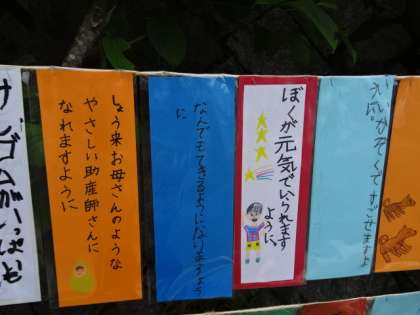 かぞくですごせますよ
うに。
ぼくが元気でいられます
ように、
なんでもできるようになりますよう
に
しょう来お母さんのような
やさしい助産師さんに
なれますように